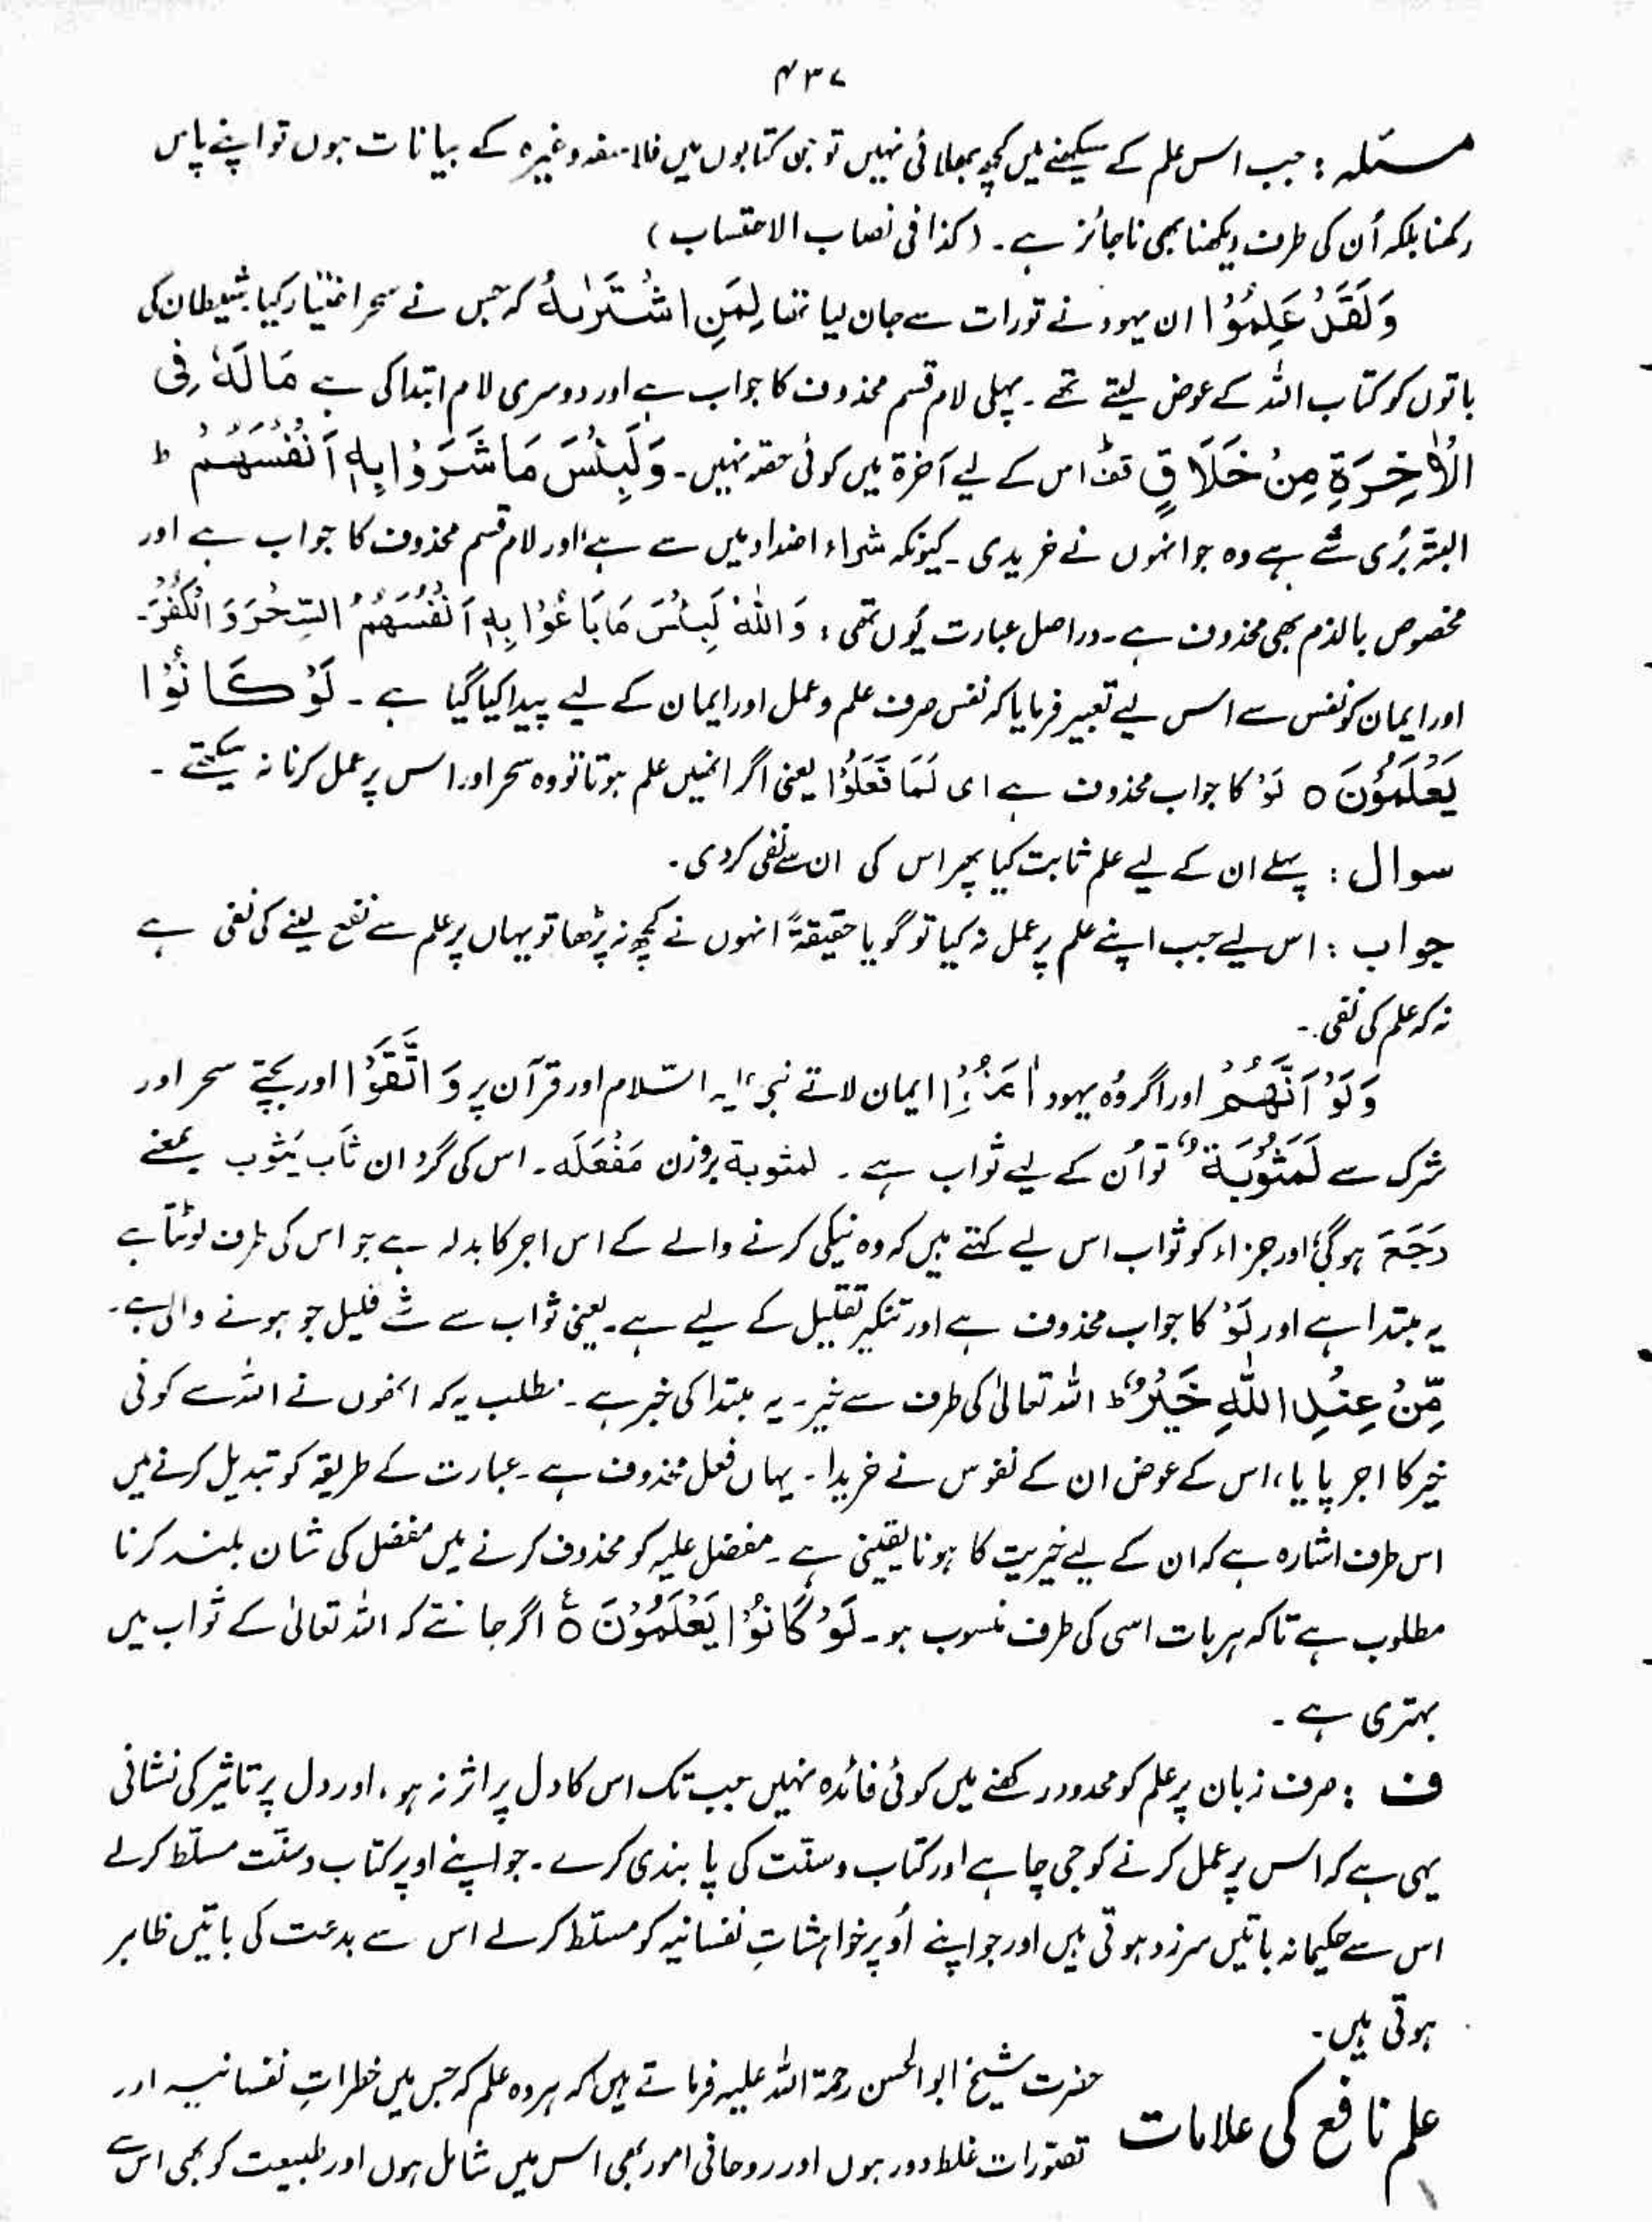 ۴۳۷
مسئلہ : جب اس علم کے سیکھنے میں کچھ بھلائی نہیں تو جن کتابوں میں فلاسفہ وغیرہ کے بیانات ہوں تو اپنے پاس
رکھنا بلکہ اُن کی طرف دیکھنا بھی ناجائز ہے۔ (کذا فی نصاب الاحتساب)
وَلَقَدْ عَلِمُوْا ان یہود نے تورات سے جان لیا تھا لِمَنِ اشْتَرٰىهُ کہ جس نے سحر اختیار کیا شیطان کی
باتوں کو کتاب اللہ کے عوض لیتے تھے۔ پہلی لام قسم محذوف کا جواب ہے اور دوسری لام ابتدا کی ہے مَا لَهٗ فِی
الْاٰخِرَةِ مِنْ خَلَاقٍ قف اس کے لیے آخرۃ میں کوئی حصّہ نہیں۔ وَلَبِئْسَ مَا شَرَوْا بِهٖۤ اَنْفُسَهُمْ ط
البتہ بُری شے ہے وہ جو انہوں نے خریدی۔ کیونکہ شراء اضداد میں سے ہے، اور لام قسم محذوف کا جواب ہے اور
مخصوص بالذم بھی محذوف ہے۔ دراصل عبارت یُوں تھی : وَاللّٰهُ لَبِئْسَ مَا بَاعُوْا بِهٖ اَنْفُسَهُمُ السِّحْرَ وَ الْكُفْرَ۔
اور ایمان کو نفس سے اس لیے تعبیر فرمایا کہ نفس صرف علم و عمل اور ایمان کے لیے پیدا کیا گیا ہے۔ لَوْ كَانُوْا
یَعْلَمُوْنَ ○ لَوْ کا جواب محذوف ہے ای لَمَا فَعَلُوْا یعنی اگر انھیں علم ہوتا تو وہ سحر اور اس پر عمل کرنا نہ سیکھتے۔
سوال : پہلے ان کے لیے علم ثابت کیا پھر اس کی ان سے نفی کر دی۔
جواب : اس لیے جب اپنے علم پر عمل نہ کیا تو گویا حقیقۃً انہوں نے کچھ نہ پڑھا تو یہاں پر علم سے نفع لینے کی نفی ہے
نہ کہ علم کی نفی۔
وَلَوْ اَنَّهُمْ اور اگر وُہ یہود اٰمَنُوْا ایمان لاتے نبی علیہ السّلام اور قرآن پر وَاتَّقَوْا اور بچتے سحر اور
شرک سے لَمَثُوْبَةٌ تو اُن کے لیے ثواب ہے۔ لمثوبة بروزن مَفْعَلَه۔ اس کی گردان ثَاب یَثُوب بمعنے
رَجَعَ ہوگی، اور جزاء کو ثواب اس لیے کہتے ہیں کہ وہ نیکی کرنے والے کے اس اجر کا بدلہ ہے جو اس کی طرف لوٹتا ہے
یہ مبتدا ہے اور لَوْ کا جواب محذوف ہے اور تنکیر تقلیل کے لیے ہے۔ یعنی ثواب سے شے قلیل جو ہونے والی ہے۔
مِّنْ عِنْدِ اللّٰهِ خَیْرٌ ط اللہ تعالیٰ کی طرف سے خیر۔ یہ مبتدا کی خبر ہے۔ مطلب یہ کہ انھوں نے اللہ سے کوئی
خیر کا اجر پایا، اس کے عوض ان کے نفوس نے خریدا۔ یہاں فعل محذوف ہے۔ عبارت کے طریقہ کو تبدیل کرنے میں
اس طرف اشارہ ہے کہ ان کے لیے خیریت کا ہونا یقینی ہے۔ مفضل علیہ کو محذوف کرنے میں مفضل کی شان بلند کرنا
مطلوب ہے تاکہ ہر بات اسی کی طرف منسوب ہو۔ لَوْ كَانُوْا یَعْلَمُوْنَ ○ اگر جانتے کہ اللہ تعالیٰ کے ثواب میں
بہتری ہے۔
ف : صرف زبان پر علم کو محدود رکھنے میں کوئی فائدہ نہیں جب تک اس کا دل پر اثر نہ ہو، اور دل پر تاثیر کی نشانی
یہی ہے کہ اس پر عمل کرنے کو جی چاہے اور کتاب و سنّت کی پابندی کرے۔ جو اپنے اوپر کتاب و سنّت مسلّط کر لے
اس سے حکیمانہ باتیں سرزد ہوتی ہیں اور جو اپنے اُوپر خواہشاتِ نفسانیہ کو مسلّط کر لے اس سے بدعت کی باتیں ظاہر
ہوتی ہیں۔
علم نافع کی علامات
حضرت شیخ ابوالحسن رحمۃ اللہ علیہ فرماتے ہیں کہ ہر وہ علم کہ جس میں خطراتِ نفسانیہ اور
تصوّرات غلط دور ہوں اور روحانی امور بھی اس میں شامل ہوں اور طبیعت کو بھی اس سے